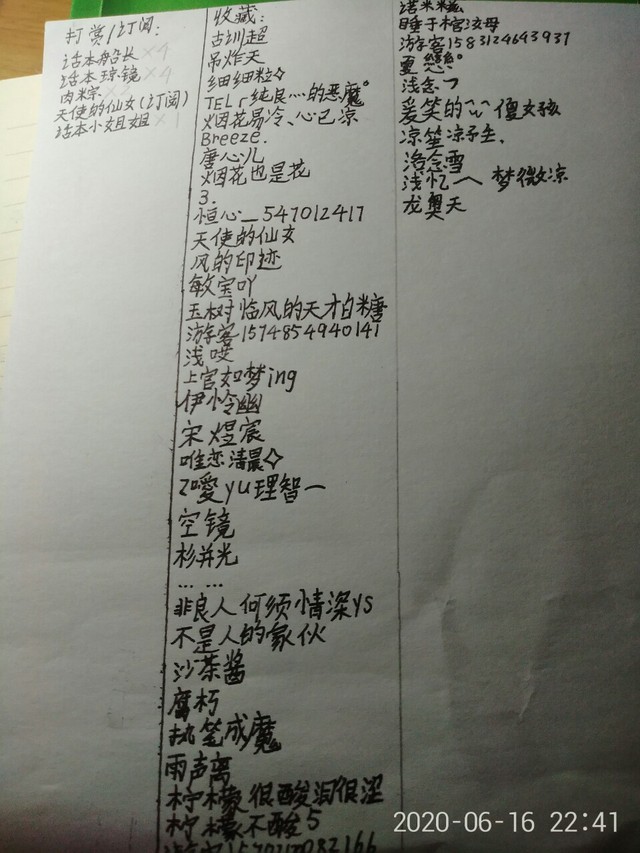 打赏/订阅:
话本船长×4
话本琼镜×4
肉粽×2
天使的仙女(订阅)
话本小姐姐×1
收藏:
古训超
吊炸天
细细粒◇
TELr纯良灬的恶魔°
烟花易冷、心已凉
Breeze.
唐心儿
烟花也是花
3.
恒心_547012417
天使的仙女
风的印迹
敏宝吖
玉树临风的天才白糖
游客1574854940141
浅哎
上官如梦ing
伊怜幽
宋煜宸
唯恋清晨◇
乙噯yu理智一
空镜
杉并光
… …
非良人何须情深ys
不是人的家伙
沙茶酱
腐朽
执笔成魔
雨声离
柠檬很酸泪很涩
柠檬不酸5
诺米糍
睡于棺浤母
游客1583124643937
夏戀°
浅念乛
爰笑的^_^傻女孩
凉笙凉子生.
洛念雪
浅忆へ梦微凉
龙奥天
2020-06-16 22:41